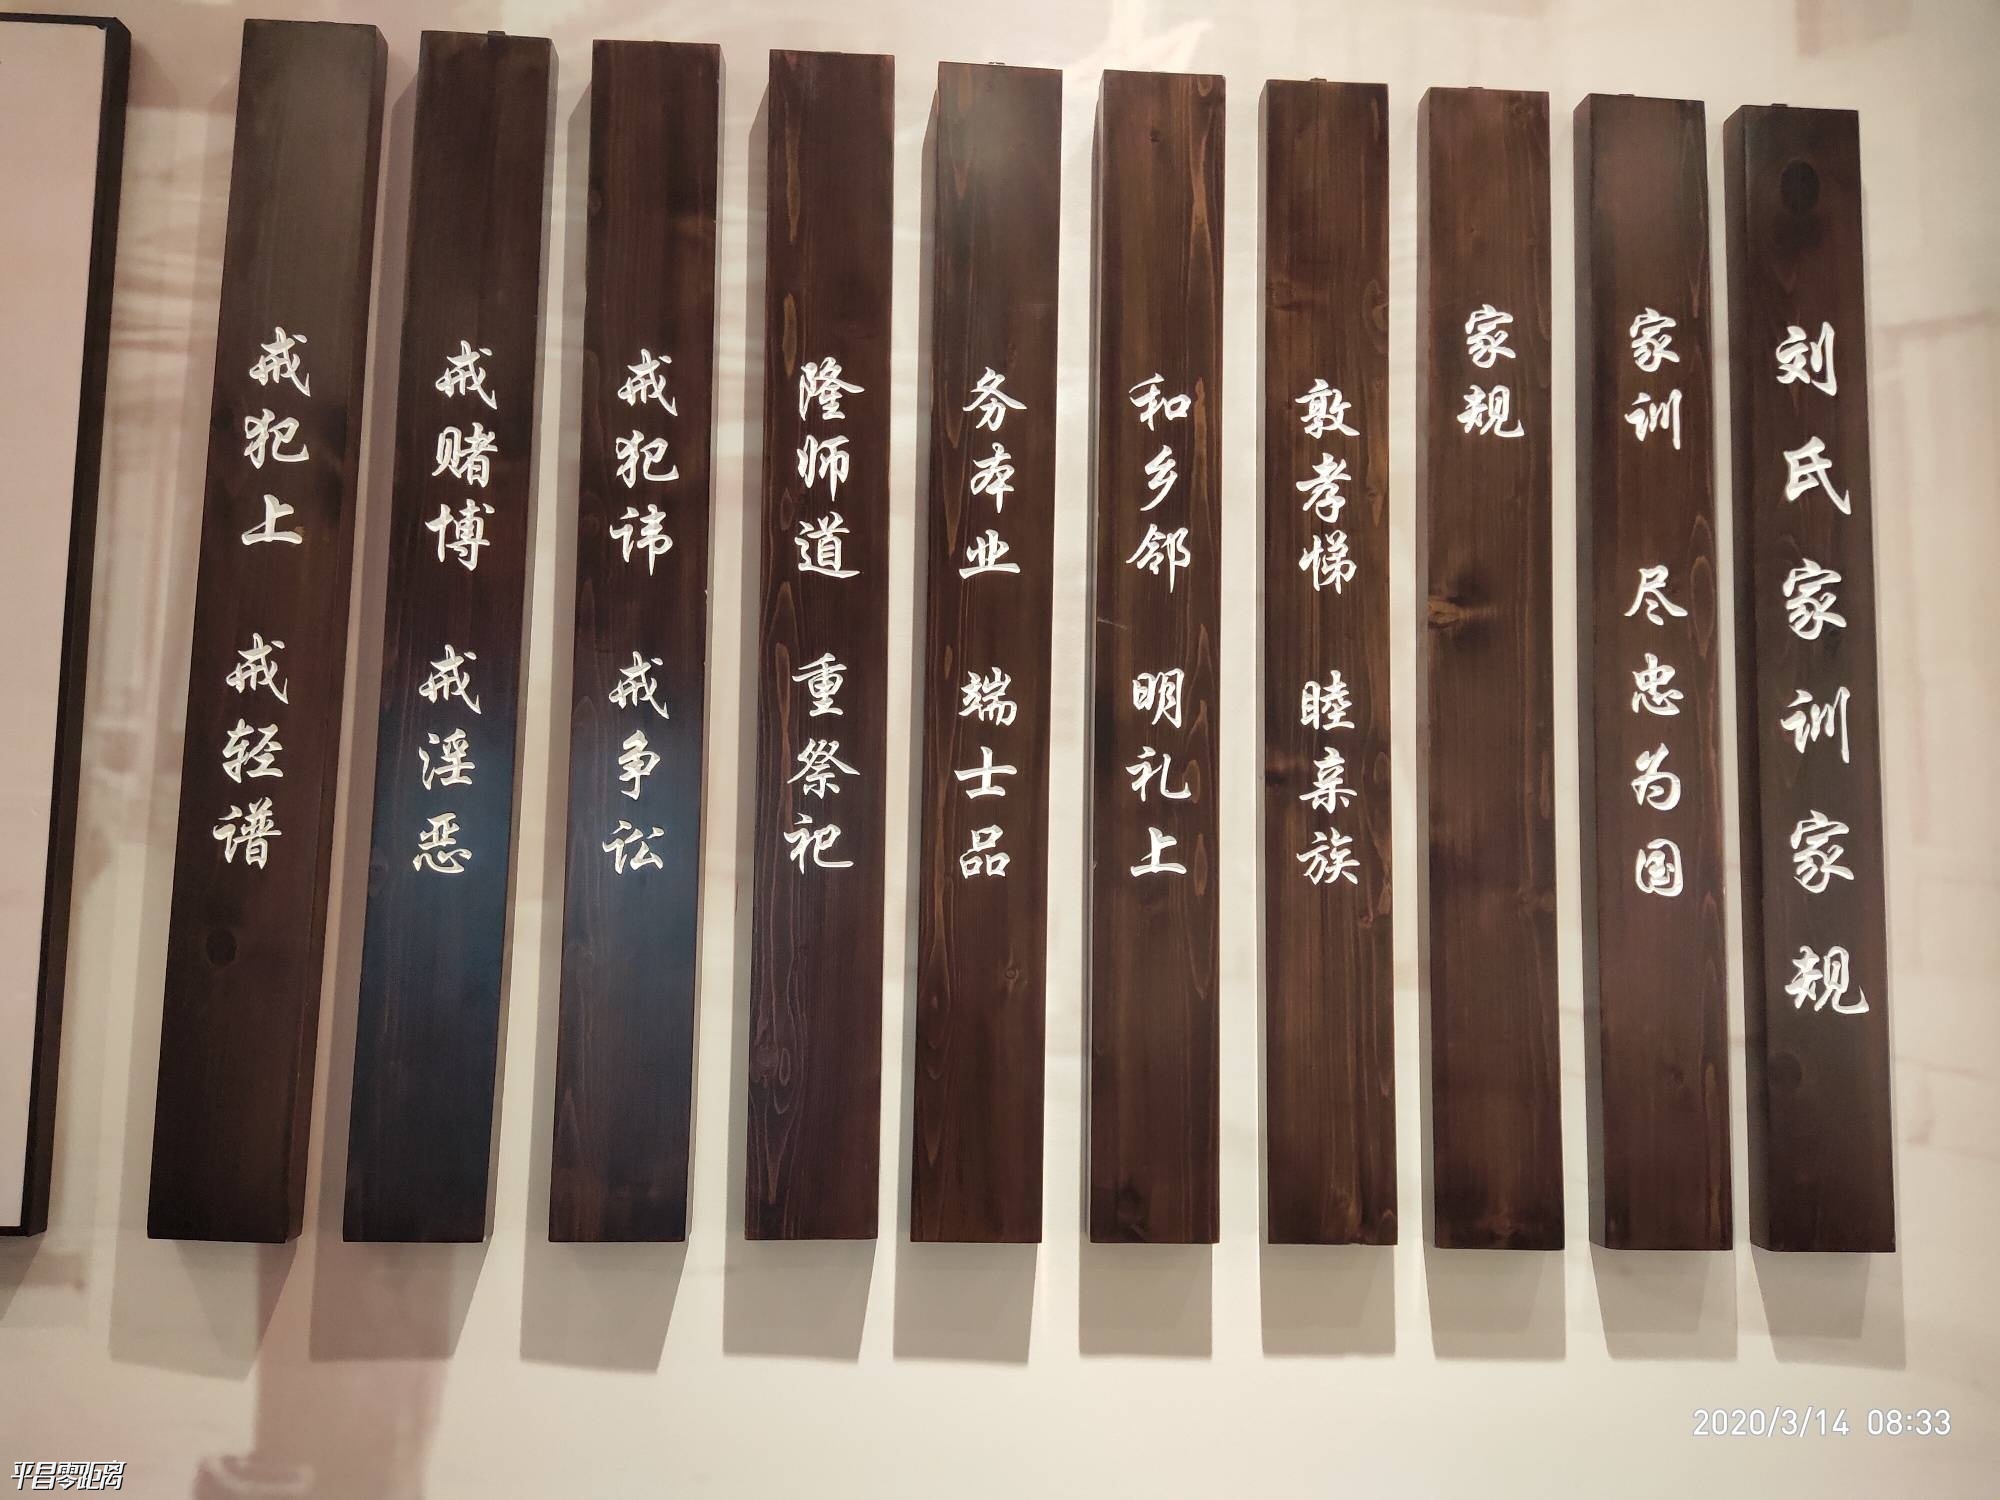 刘氏家训家规
家训 尽忠为国
家规
敦孝悌 睦亲族
和乡邻 明礼上
务本业 端士品
隆师道 重祭祀
戒犯讳 戒争讼
戒赌博 戒淫恶
戒犯上 戒轻谱
2020/3/14 08:33
平昌零距离